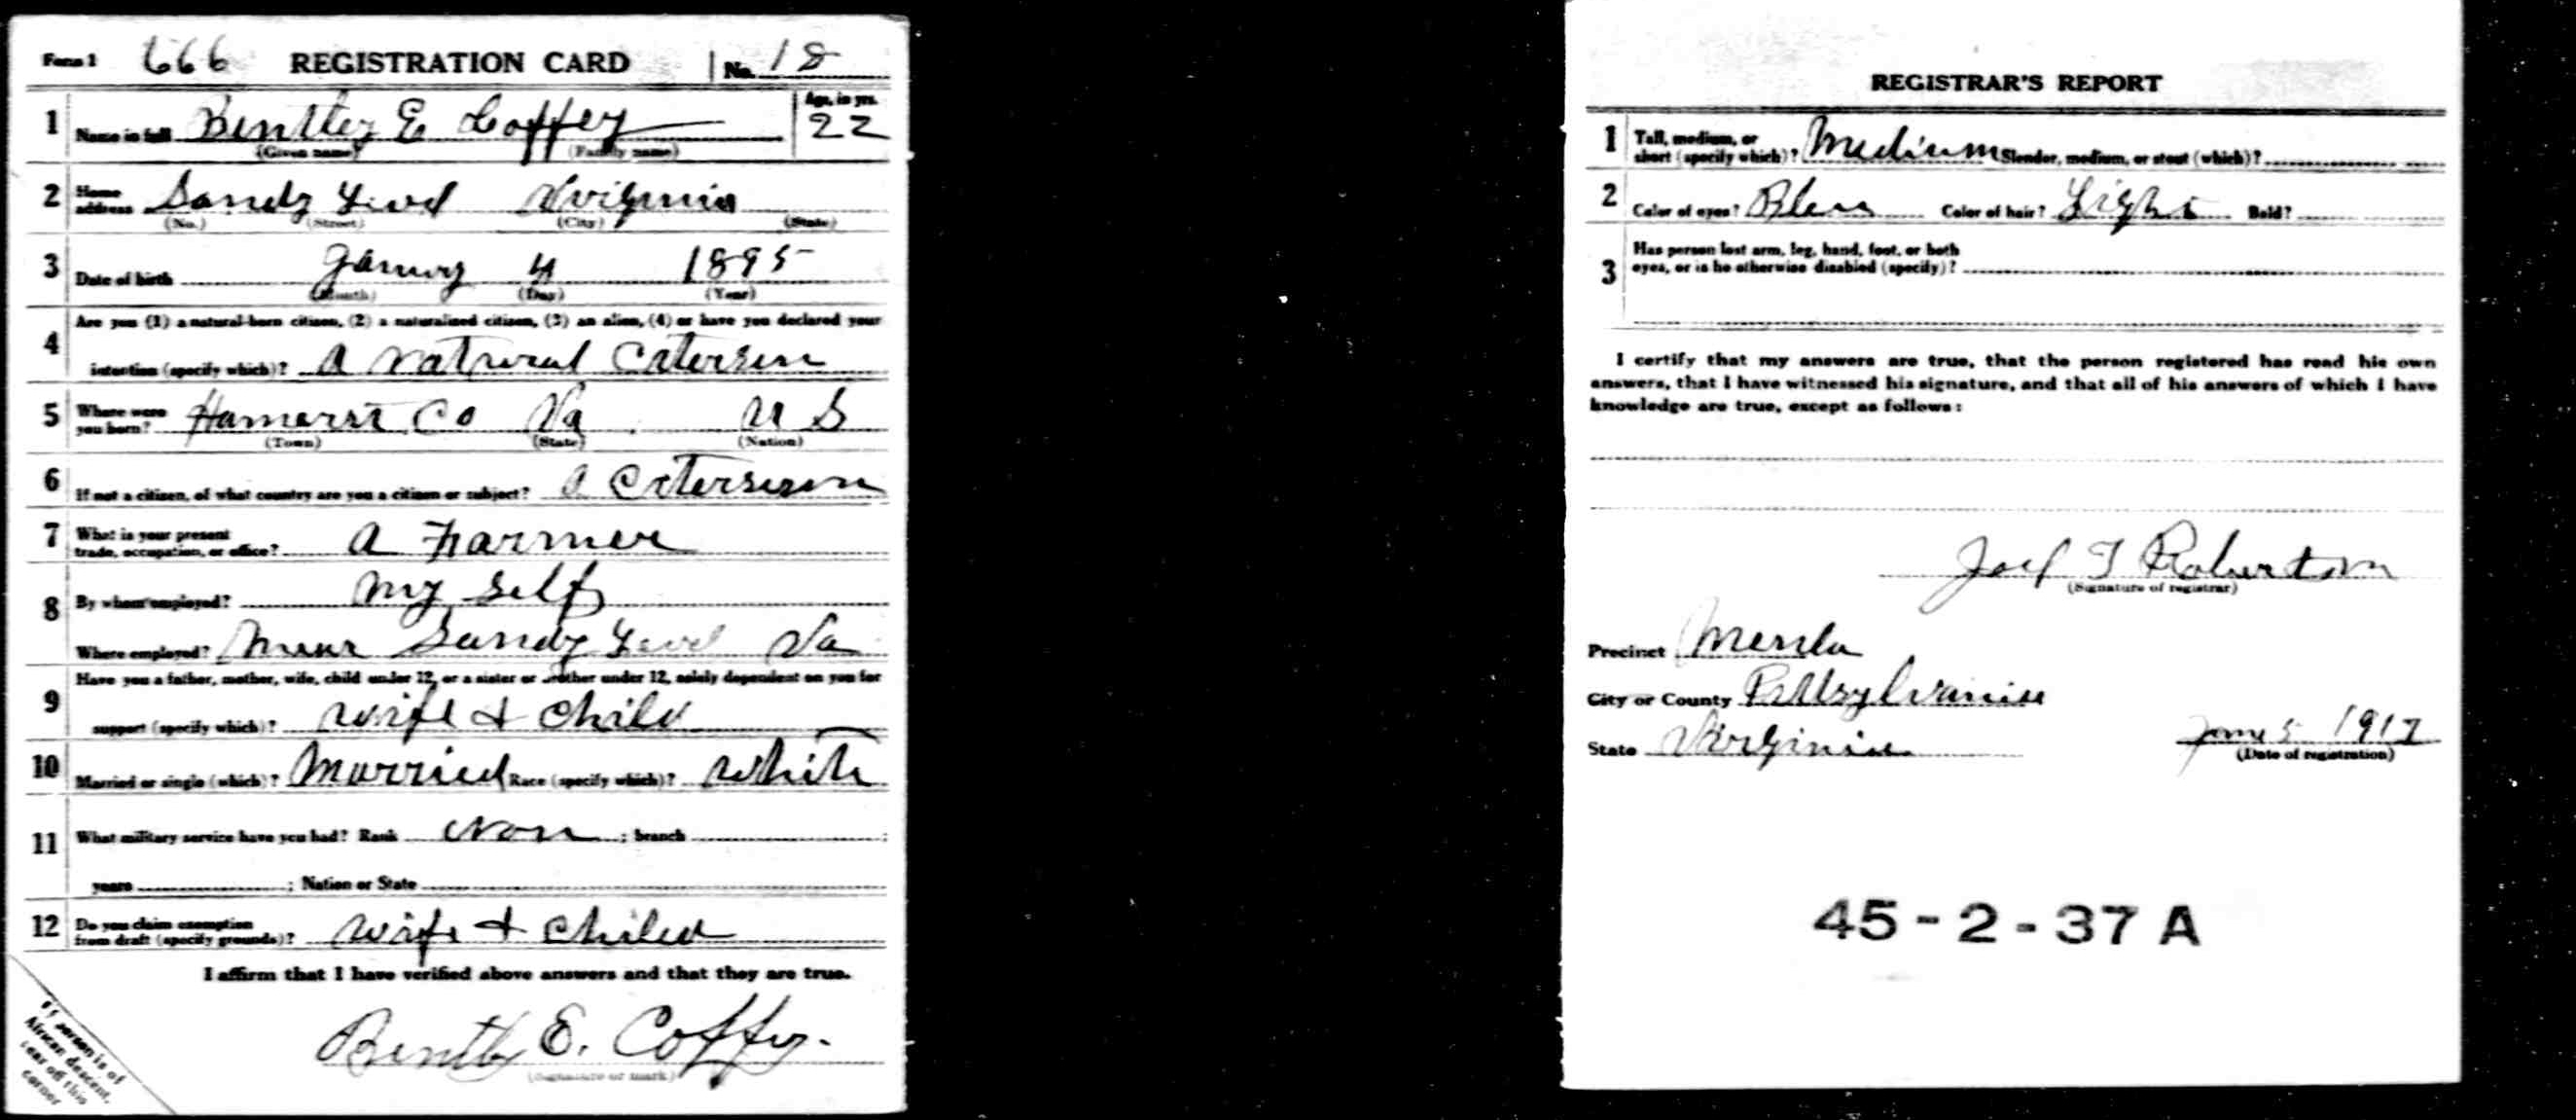 Form 1 666 REGISTRATION CARD No. 18
1 Name in full Bentley E Coffey Age, in yrs. 22
(Given name) (Family name)
2 Home address Sandy Level Virginia
(No.) (Street) (City) (State)
3 Date of birth 4 1895
(Month) (Day) (Year)
4 Are you (1) a natural-born citizen, (2) a naturalized citizen, (3) an alien, (4) or have you declared your
intention (specify which)? a natural
5 Where were you born? Hamerst Co Va. U S
(Town) (State) (Nation)
6 If not a citizen, of what country are you a citizen or subject? a
7 What is your present trade, occupation, or office? a Farmer
8 By whom employed? my self
Where employed? Sandy Level Va
9 Have you a father, mother, wife, child under 12, or a sister or brother under 12, solely dependent on you for
support (specify which)? wife & child
10 Married or single (which)? Married Race (specify which)? White
11 What military service have you had? Rank Non ; branch ;
years ; Nation or State
12 Do you claim exemption from draft (specify grounds)? wife & child
I affirm that I have verified above answers and that they are true.
E. Coffey.
(Signature or mark)
If person is of
African descent,
tear off this
corner
REGISTRAR'S REPORT
1 Tall, medium, or short (specify which)? Medium Slender, medium, or stout (which)?
2 Color of eyes? Color of hair? Light Bald?
3 Has person lost arm, leg, hand, foot, or both
eyes, or is he otherwise disabled (specify)?
I certify that my answers are true, that the person registered has read his own
answers, that I have witnessed his signature, and that all of his answers of which I have
knowledge are true, except as follows:
Joel T Robertson
(Signature of registrar)
Precinct
City or County Pittsylvania
State Virginia June 5 1917
(Date of registration)
45-2-37 A